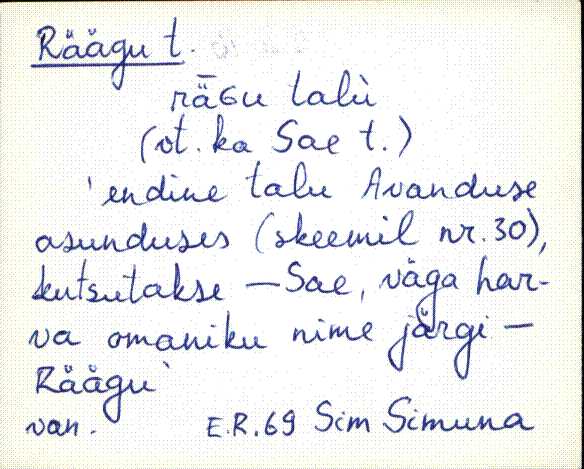 Räägu t.
rā̈Gu talù
(vt. ka Sae t.)
'endine talu Avanduse
asunduses (skeemil nr. 30),
kutsutakse – Sae, väga har-
va omaniku nime järgi –
Räägu'
van. E.R.69 Sim Simuna